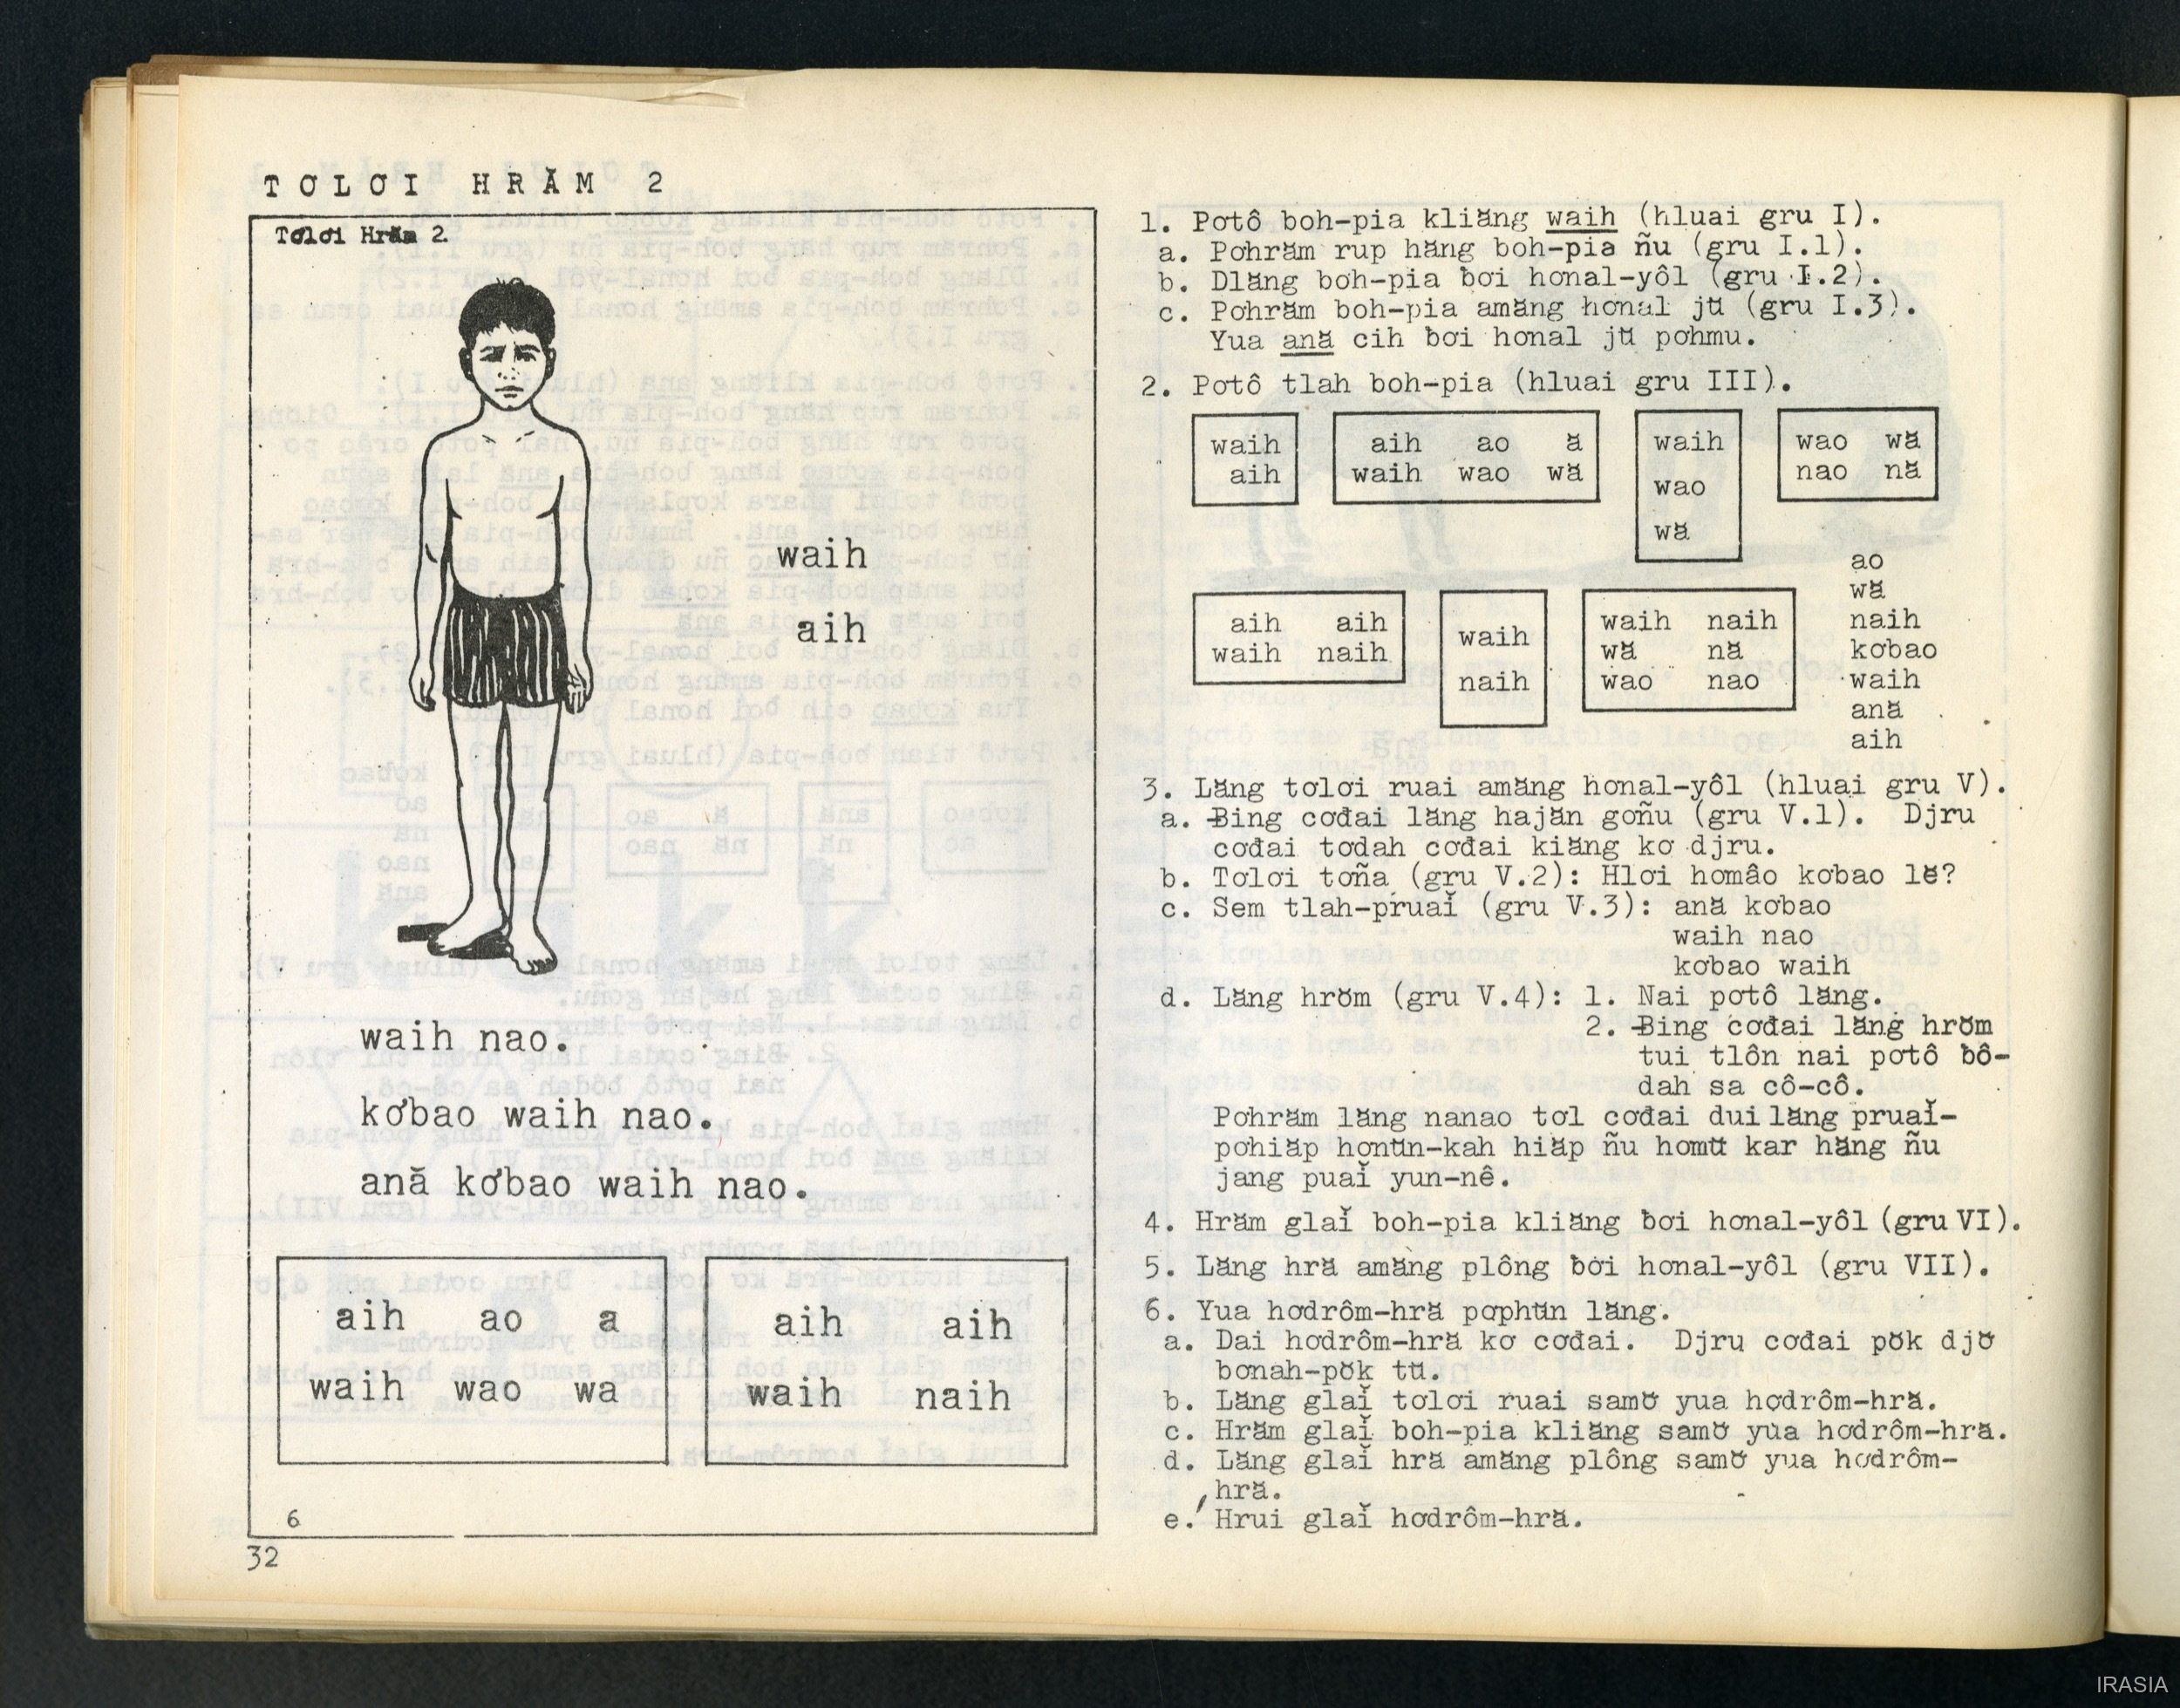 TƠLƠI HRĂM 2
Tơlơi Hrăm 2.
waih
aih
waih nao.
kơbao waih nao.
ană kơbao waih nao.
aih ao a
waih wao wa
aih aih
waih naih
6
32
1. Pơtô boh-pia kliăng waih (hluai gru I).
a. Pơhrăm rup hăng boh-pia ñu (gru I.1).
b. Dlăng boh-pia ƀơi hơnal-yôl (gru I.2).
c. Pơhrăm boh-pia amăng hơnal jŭ (gru I.3).
Yua ană cih ƀơi hơnal jŭ pơhmu.
2. Pơtô tlah boh-pia (hluai gru III).
waih
aih
aih ao ă
waih wao wă
waih
wao
wă
wao wă
nao nă
aih aih
waih naih
waih
naih
waih naih
wă nă
wao nao
ao
wă
naih
kơbao
waih
ană
aih
3. Lăng tơlơi ruai amăng hơnal-yôl (hluai gru V).
a. Ƀing cơđai lăng hajăn gơñu (gru V.1). Djru
cơđai tơdah cơđai kiăng kơ djru.
b. Tơlơi tơña (gru V.2): Hlơi hơmâo kơbao lĕ?
c. Sem tlah-pruaĭ (gru V.3): ană kơbao
waih nao
kơbao waih
d. Lăng hrŏm (gru V.4): 1. Nai pơtô lăng.
2. Ƀing cơđai lăng hrŏm
tui tlôn nai pơtô ƀô-
dah sa cô-cô.
Pơhrăm lăng nanao tơl cơđai dui lăng pruaĭ-
pơhiăp hơnŭn-kah hiăp ñu hơmŭ kar hăng ñu
jang puaĭ yun-nê.
4. Hrăm glaĭ boh-pia kliăng ƀơi hơnal-yôl (gru VI).
5. Lăng hră amăng plông ƀơi hơnal-yôl (gru VII).
6. Yua hơdrôm-hră pơphŭn lăng.
a. Dai hơdrôm-hră kơ cơđai. Djru cơđai pŏk djŏ
bơnah-pŏk tŭ.
b. Lăng glaĭ tơlơi ruai samŏ yua hơdrôm-hră.
c. Hrăm glaĭ boh-pia kliăng samŏ yua hơdrôm-hră.
d. Lăng glaĭ hră amăng plông samŏ yua hơdrôm-
hră.
e. Hrui glaĭ hơdrôm-hră.
IRASIA